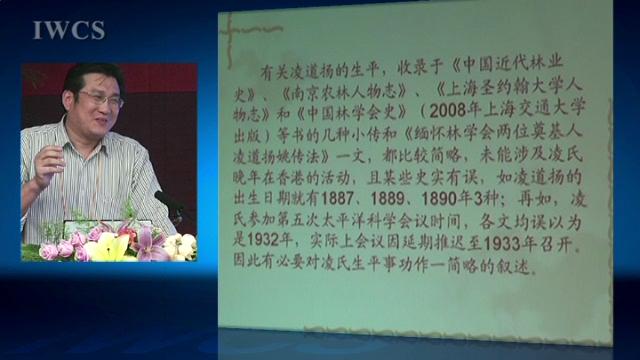 IWCS
有关凌道扬的生平，收录于《中国近代林业
史》、《南京农林人物志》、《上海圣约翰大学人
物志》和《中国林学会史》（2008年上海交通大学
出版）等书的几种小传和《缅怀林学会两位奠基人
凌道扬姚传法》一文，都比较简略，未能涉及凌氏
晚年在香港的活动，且某些史实有误，如凌道扬的
出生日期就有1887、1889、1890年3种；再如，凌
氏参加第五次太平洋科学会议时间，各文均误以为
是1932年，实际上会议因延期推迟至1933年召开。
因此有必要对凌氏生平事功作一简略的叙述。